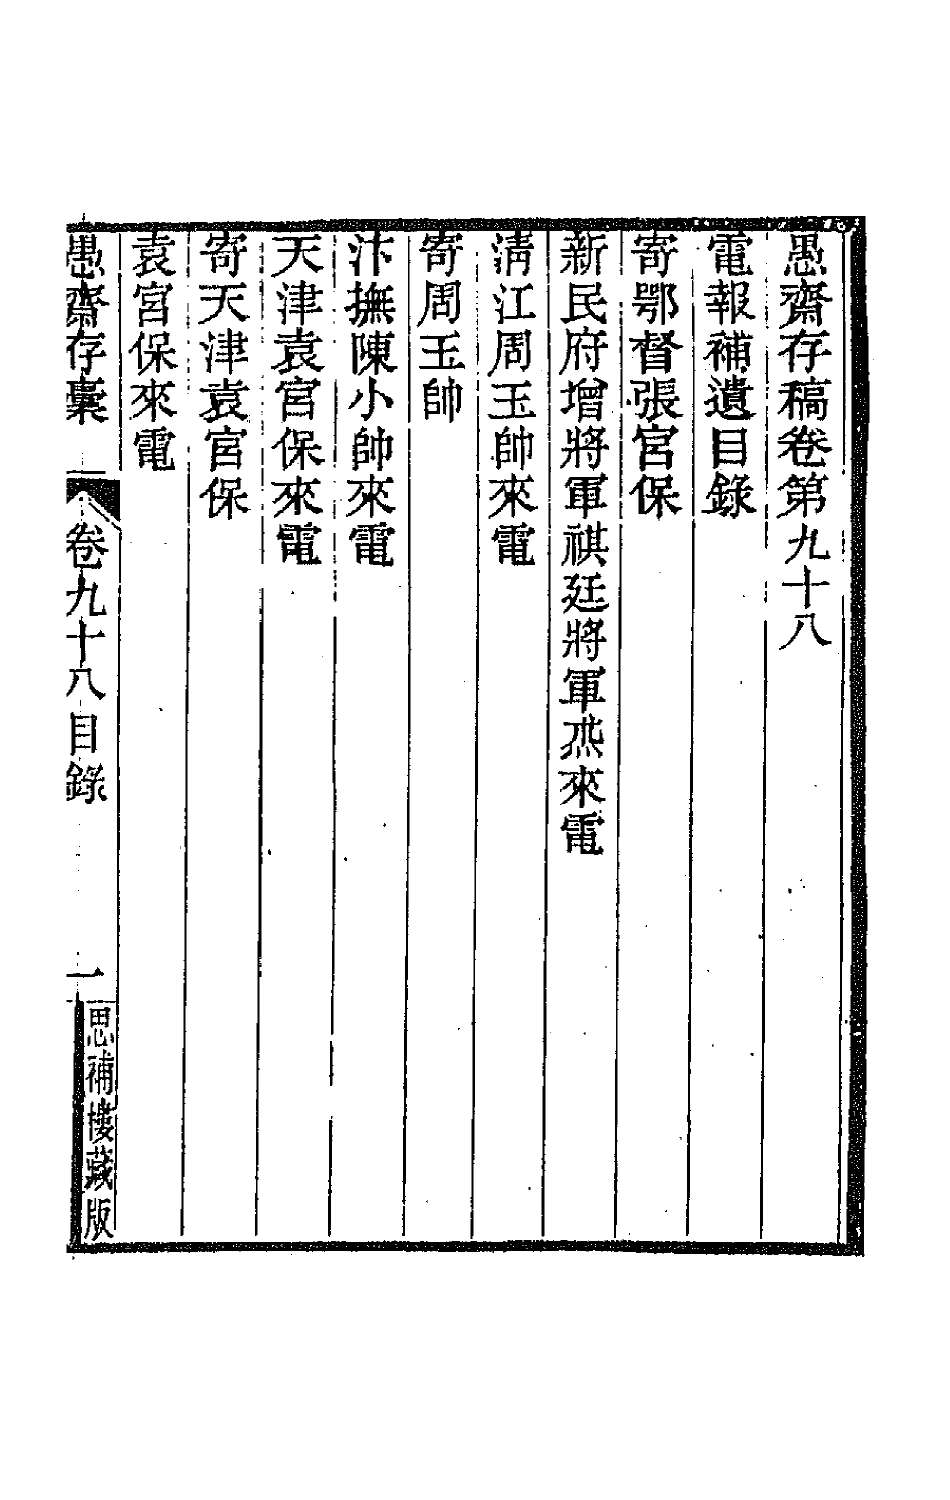 愚齋存稿卷第九十八
電報補遺目錄
寄鄂督張宮保
新民府增將軍祺廷將軍杰來電
清江周玉帥來電
寄周玉帥
汴撫陳小帥來電
天津袁宮保來電
寄天津袁宮保
袁宮保來電
愚齋存稾 卷九十八目錄 一 思補樓藏版